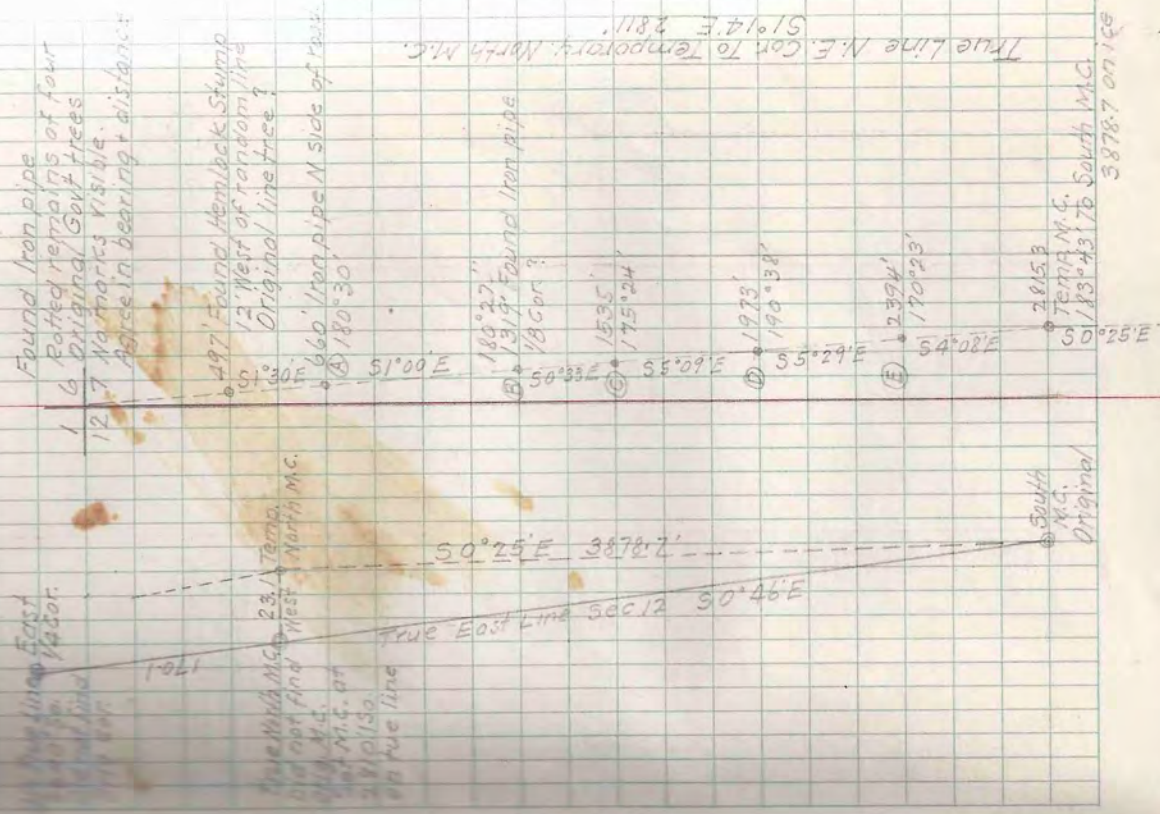 Found Iron pipe
Rotted remains of four
Original Gov't trees
No marks visible.
Agree in bearing + distance
1 6
12 7
497' Found Hemlock Stump
12' West of random line
Original line tree?
S1°30'E
660' Iron pipe N side of
Ⓐ 180°30'
S1°00'E
180°27'
Ⓑ 1319' Found Iron pipe
1/8 Cor.?
S0°33'E
1535'
Ⓒ 175°24'
S5°09'E
1973'
Ⓓ 190°38'
S5°29'E
2394'
Ⓔ 170°23'
S4°08'E
2815.3
Temp. M.C.
183°43' To South M.C.
3878.7 on ice
S0°25'E
True Line N.E. Cor. To Temporary North M.C.
S1°14'E 2811'
East
1/4 Cor.
170.1
23.1 Temp.
West North M.C.
S0°25'E 3878.7'
True East Line Sec 12 S0°46'E
South
M.C.
Original
True North M.C.
Did not find
M.C.
M.C. at
So.
on true line